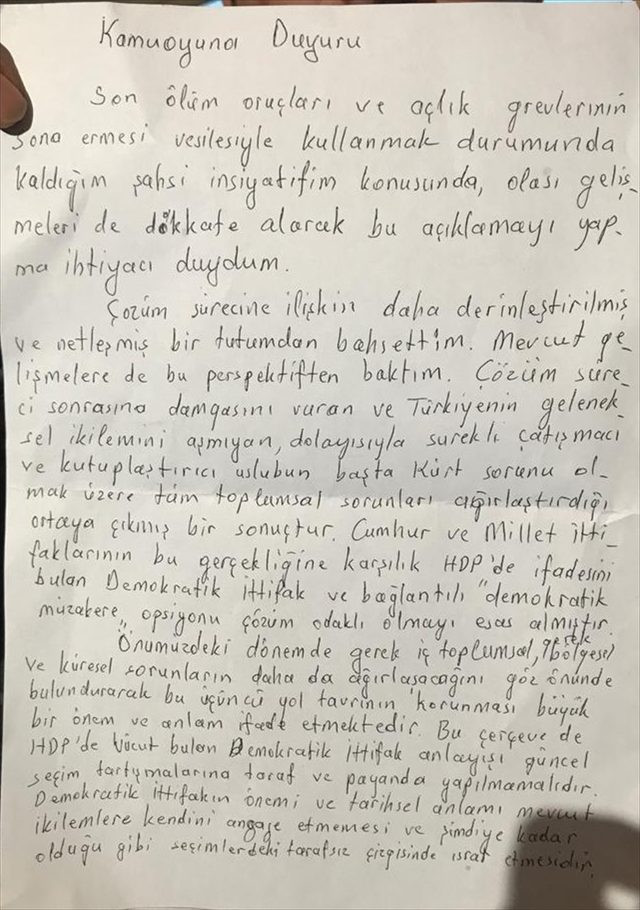 Kamuoyuna Duyuru
Son ölüm oruçları ve açlık grevlerinin
sona ermesi vesilesiyle kullanmak durumunda
kaldığım şahsi insiyatifim konusunda, olası geliş-
meleri de dikkate alarak bu açıklamayı yap-
ma ihtiyacı duydum.
Çözüm sürecine ilişkin daha derinleştirilmiş
ve netleşmiş bir tutumdan bahsettim. Mevcut ge-
lişmelere de bu perspektiften baktım. Çözüm süre-
ci sonrasına damgasını vuran ve Türkiyenin gelenek-
sel ikilemini aşmıyan, dolayısıyla sürekli çatışmacı
ve kutuplaştırıcı uslubun başta Kürt sorunu ol-
mak üzere tüm toplumsal sorunları ağırlaştırdığı
ortaya çıkmış bir sonuçtur. Cumhur ve Millet itti-
faklarının bu gerçekliğine karşılık HDP'de ifadesini
bulan Demokratik ittifak ve bağlantılı "demokratik
müzakere" opsiyonu çözüm odaklı olmayı esas almıştır.
Önümüzdeki dönemde gerek iç toplumsal, gerek bölgesel
ve küresel sorunların daha da ağırlaşacağını göz önünde
bulundurarak bu üçüncü yol tavrının korunması büyük
bir önem ve anlam ifade etmektedir. Bu çerçeve de
HDP'de vücut bulan Demokratik ittifak anlayışı güncel
seçim tartışmalarına taraf ve payanda yapılmamalıdır.
Demokratik ittifakın önemi ve tarihsel anlamı mevcut
ikilemlere kendini angaje etmemesi ve şimdiye kadar
olduğu gibi seçimlerdeki tarafsız çizgisinde israr etmesidir.